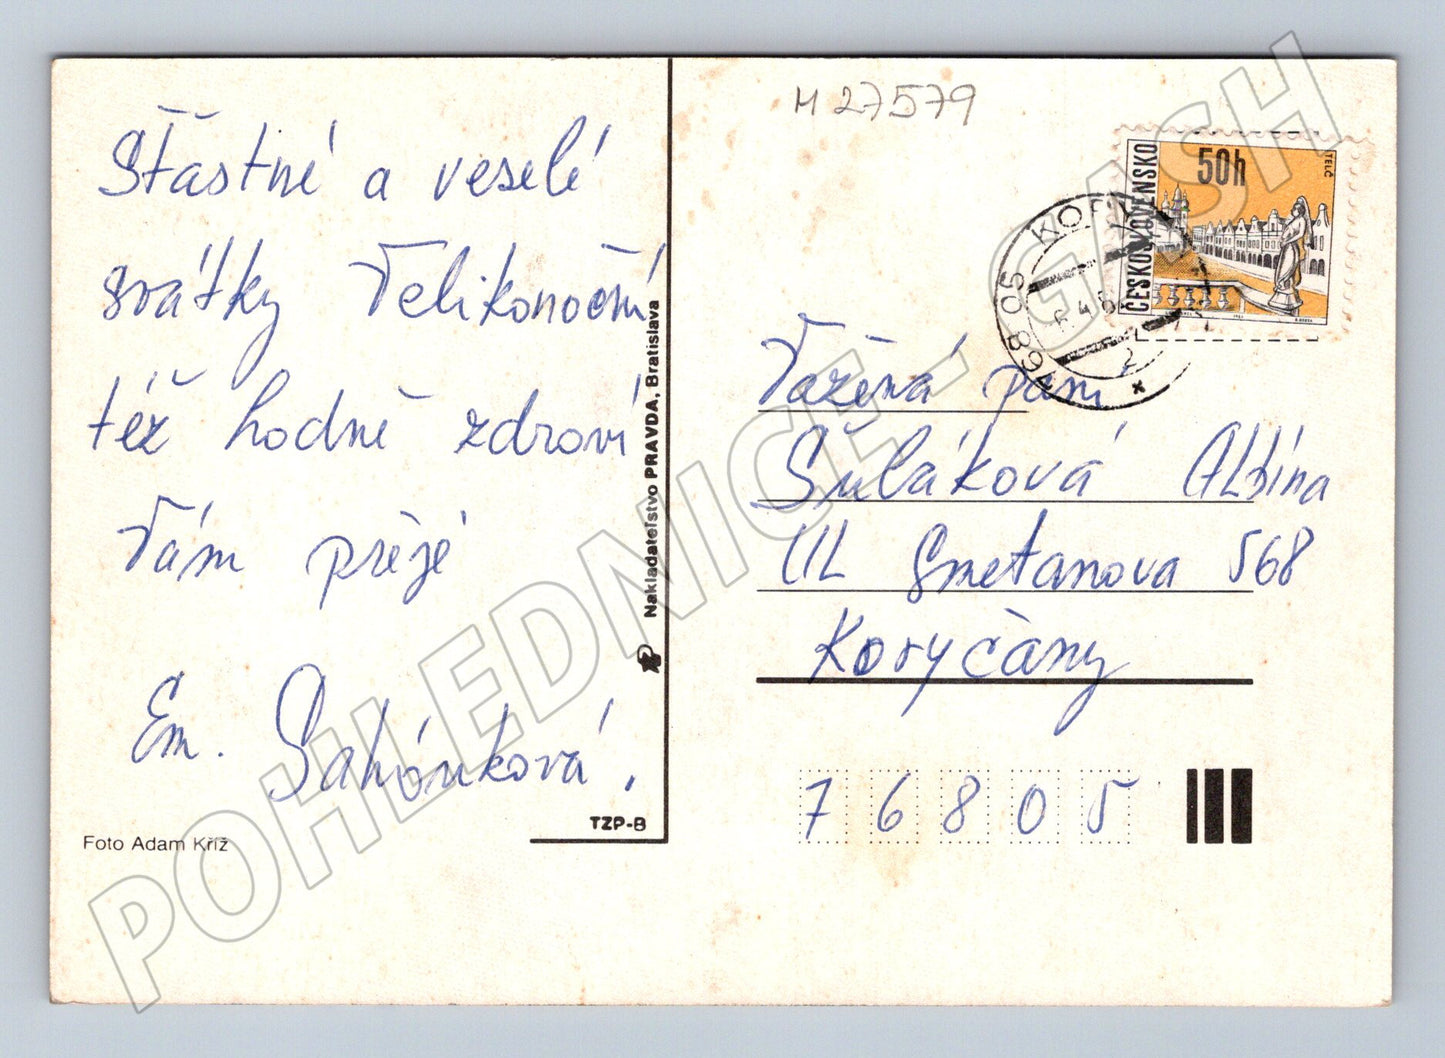 Šťastné a veselé
svátky Velikonoční
též hodně zdraví
Vám přeje
Em. Sahónková.
Foto Adam Kříž
TZP-B
Nakladateľstvo PRAVDA, Bratislava
M 27579
ČESKOSLOVENSKO
50h
TELČ
768 05 KORY
6.4.8
2
Vážená paní
Šuláková Albína
Ul Smetanova 568
Koryčany
76805
POHLEDNICE - GASH